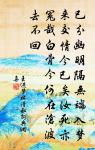 已分幽明隔無端入夢
來交情今已矣汝死亦
冤哉白骨今何在滄波
去不回